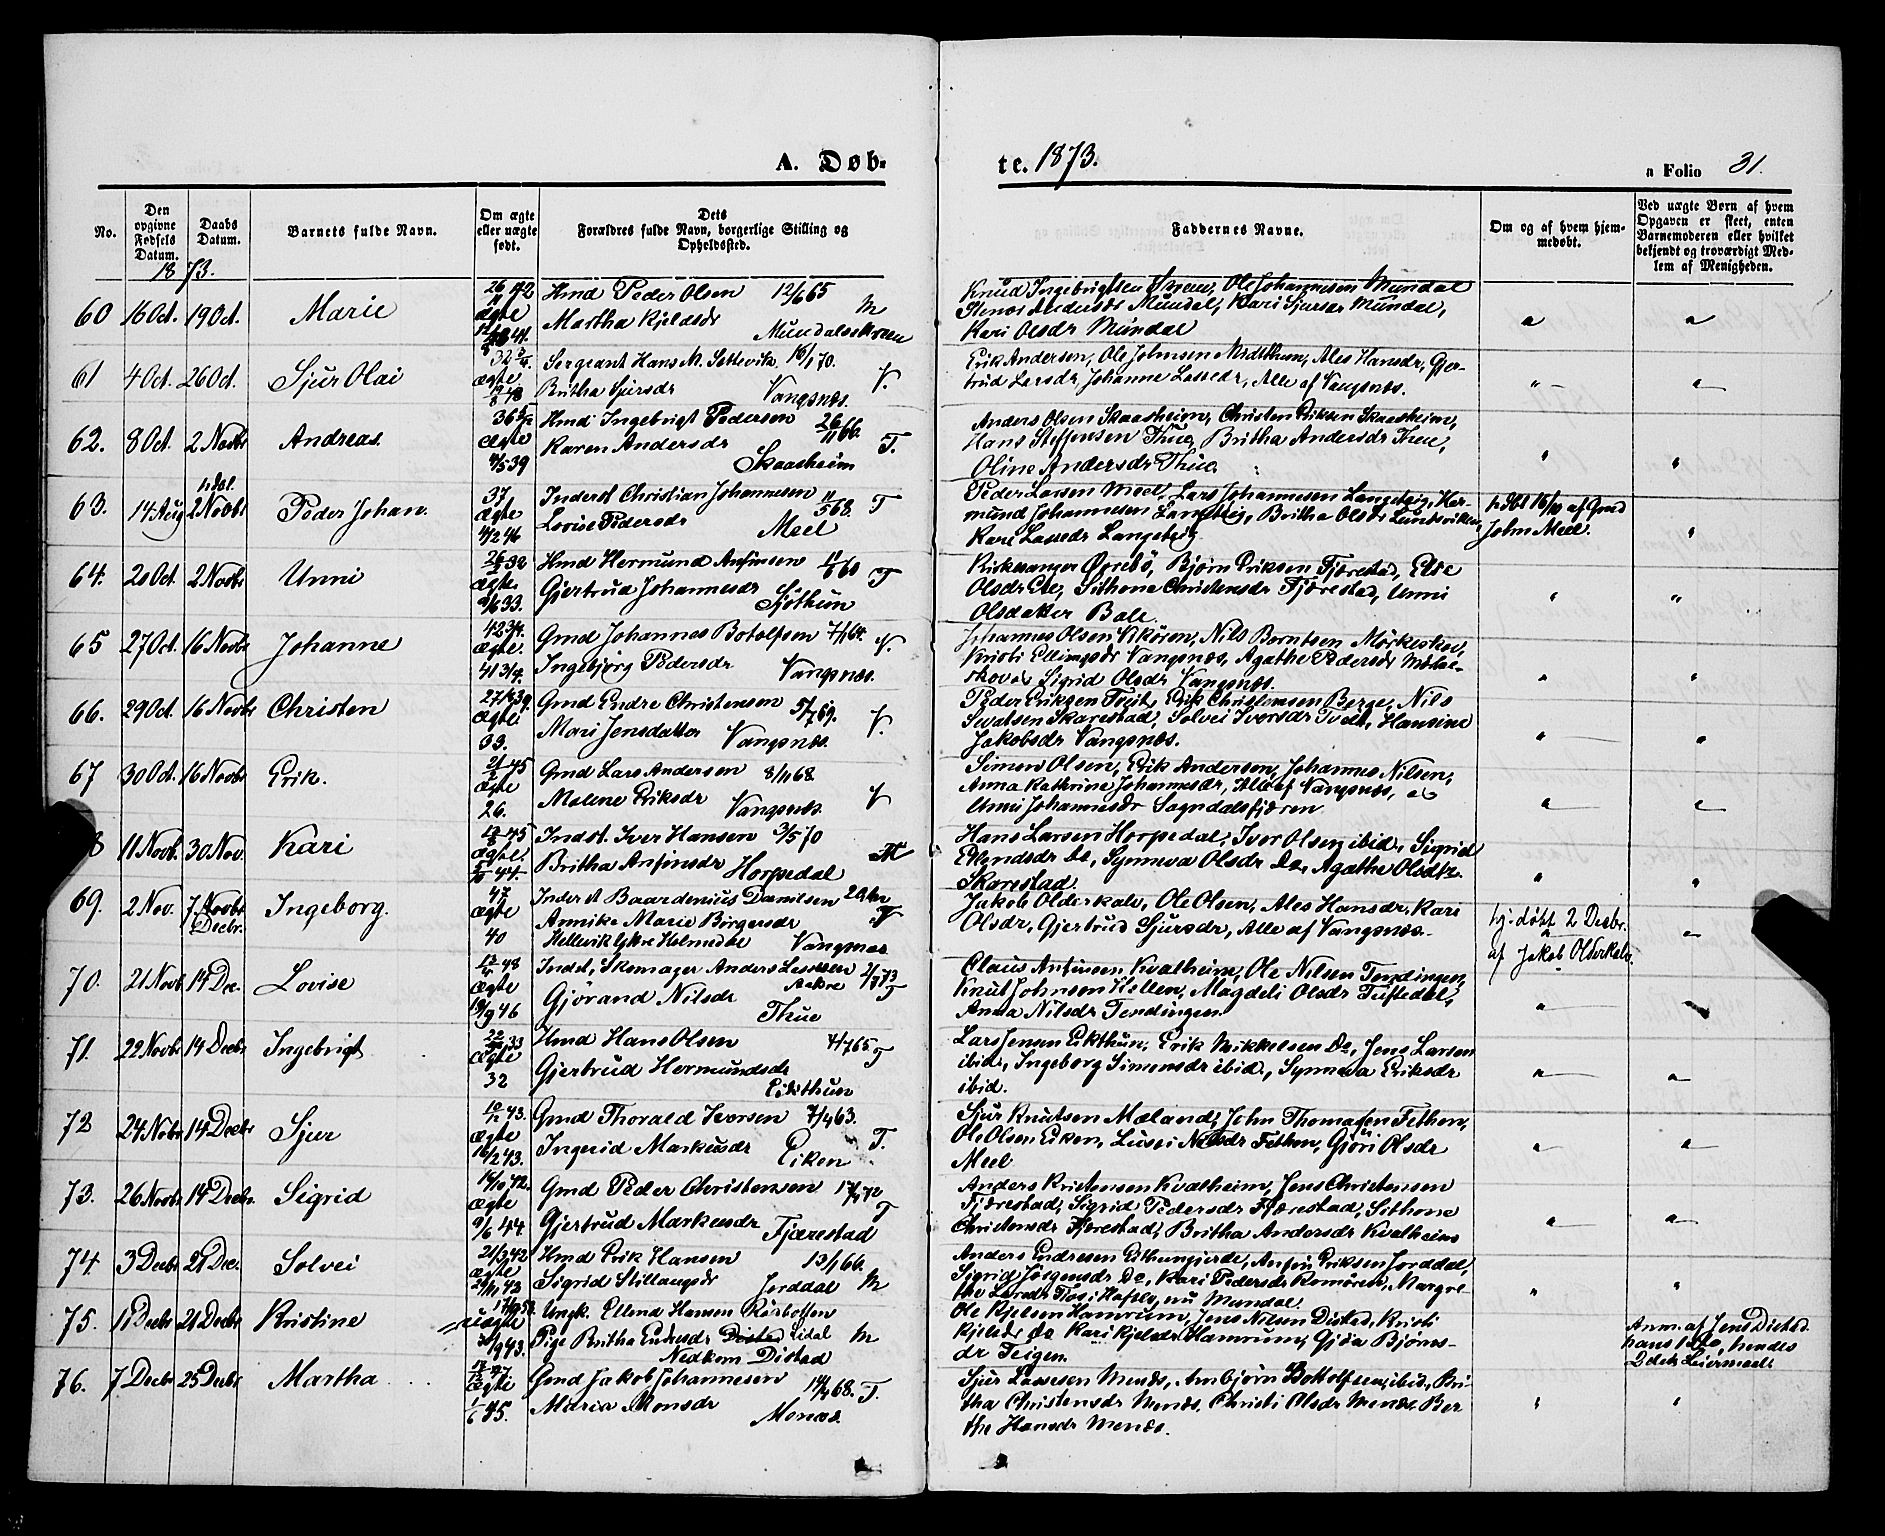 A. Døb-
te. 1873.
a Folio 31.
No.
Den opgivne Fødsels Datum.
Daabs Datum.
Barnets fulde Navn.
Om ægte eller uægte født.
Dets Forældres fulde Navn, borgerlige Stilling og Opholdssted.
Faddernes Navne.
Om og af hvem hjemmedøbt.
Ved uægte Børn af hvem Opgaven er skeet, enten Barnemoderen eller hvilket bekjendt og troværdigt Medlem af Menigheden.
1873.
60 16 Oct. 19 Oct. Marie ægte Hmd Peder Olsen 12/6 65
Martha Kjeldsdr M
Mundal
Knud Ingebrigtsen Ole Johannesen Mundal
Andersdr Mundal, Kari Sjursdr Mundal,
Kari Olsdr Mundal
61 4 Oct. 26 Oct. Sjur Olai ægte Sergeant Hans M. Settevik 16/1 70.
Britha Sjursdr Vangsnæs. V.
Erik Andersen, Ole Johnsen Midtthun, Ales Hansdr, Gjer-
trud Larsdr, Johanne Lassedr, Alle af Vangsnæs.
62. 8 Oct. 2 Novbr Andreas. ægte Hmd Ingebrigt Pedersen 26/11 66.
4/5 39 Karen Andersdr T.
Skaasheim
Anders Olsen Skaasheim, Christen Eriksen Skaasheim,
Hans Steffensen Thue, Britha Andersdr Thue,
Oline Andersdr Thue.
63. 14 Aug 2 Novbr Peder Johan. 37 ægte Inderst Christian Johannesen 11/5 68. T
4/2 46 Lovise Pedersdr Meel
Peder Larsen Meel, Lars Johannesen Langeteig, Her-
mund Johannesen Langeteig, Britha Olsdr
Kari Lassedr Langeteig.
h.dbt 16/10 af Gmd
John Meel.
64. 20 Oct. 2 Novbr Unni 32 ægte Hmd Hermund Anfinsen 11/6 60
9/6 33. Gjertrud Johannesdr T
Sjøthun
Kirkesanger Ørebø, Bjørn Eriksen Fjærestad, Else
Olsdr Ese, Sithone Christensdr Fjærestad, Unni
Olsdatter Bale.
65 27 Oct. 16 Novbr Johanne ægte. Gmd Johannes Botolfsen 7/1 64. V.
Ingebjørg Pedersdr Vangsnæs.
Johannes Olsen Vikøren, Nils Berntsen
Kristi Ellingsdr Vangsnæs, Agathe Pedersdr
Sigrid Olsdr Vangsnæs.
66. 29 Oct. 16 Novbr Christen ægte Gmd Endre Christensen 5/7 69.
33. Mari Jensdatter Vangsnæs. V.
Peder Eriksen Tveit, Erik Christensen Berge, Nils
Skarestad, Solvei Iversdr Tvedt, Hansine
Jakobsdr Vangsnæs.
67 30 Oct. 16 Novbr Erik. 21/2 45 ægte Gmd Lars Andersen 8/11 68
26. Malene Eriksdr Vangsnæs V
Simon Olsen, Erik Andersen, Johannes Nilsen,
Anna Kathrine Johannesdr, Alle af Vangsnæs,
Unni Johannesdr Sogndalsfjæren
8 11 Novb. 30 Nov. Kari 45 ægte. Indst. Iver Hansen 3/5 70
44. Britha Anfinsdr Horpedal
Hans Larsen Horpedal, Iver Olsen ibid, Sigrid
Ellendsdr Do, Synneva Olsdr Do, Agathe Olsdtr.
Skarestad.
69. 2 Nov. 7 Novbr Decbr. Ingeborg. 47 ægte Inderst Baardenius Danielsen
Annike Marie Børgersdr V
40 Vangsnæs
Jakob Olderkalv, Ole Olsen, Ales Hansdr, Kari
Olsdr, Gjertrud Sjursdr, Alle af Vangsnæs.
hj: døbt 2 Decbr.
af Jakob Olderkalv.
70. 21 Novb 14 Dec. Lovise 48 ægte Indst, Skomager Anders Lassesen 2/7 73
19/9 46 Gjørand Nilsdr T
Thue
Claus Anfinsen Kvalheim, Ole Nilsen Tendingen,
Knut Johnsen Hellen, Magdeli Olsdr Tuftedal,
Anna Nilsdr Tendingen.
71. 22 Novbr 14 Decbr Ingebrigt 33 ægte Hmd Hans Olsen 4/7 65 T
32 Gjertrud Hermundsdr
Eikthun
Lars Jensen Eikthun, Erik Mikkelsen Do, Jens Larsen
ibid, Ingeborg Simensdr ibid, Synneva Eriksdr
ibid.
72 24 Novbr 14 Decbr Sjur 43. ægte Gmd Thorald Iversen 7/4 63.
16/2 43. Ingerid Markusdr T.
Eiken
Sjur Knutsen Mæland, John Thomassen Fethen,
Ole Olsen Eiken, Lussi Nilsdr Fethen, Gjøri Olsdr
Meel
73. 26 Novbr 14 Decbr. Sigrid ægte Gmd Peder Christensen
9/6 44 Gjertrud Markusdr T
Fjærestad
Anders Kristensen Kvalheim, Jens Christensen
Fjærestad, Sigrid Pedersdr Fjærestad, Sithone
Christensdr Fjærestad, Britha Andersdr Kvalheim
74. 3 Decbr 21 Dec. Solvei 21/3 42 ægte Hmd Erik Hansen 13/1 66.
Sigrid Stillaugsdr Jorddal M
Anders Endresen Anfin Eriksen Jorddal,
Sigrid Jørgensdr Do, Kari Pedersdr Romøren, Margre-
the Larsdr nu Mundal.
75. 1 Decbr 21 Decbr Kristine uægte Ungk. Ellend Hansen
Pige Britha Endresdr M
Nedkom Distad
Ole Kjelsen Hamrum, Jens Nilsen Distad, Kristi
Kjelsdr do Kari Kjelsdr Hamrum, Gjøa Bjørns-
dr Teigen.
Anm. af Jens Distad
hans 1ste, hendes
2det Leiermaal
76. 7 Decbr 25 Decbr Martha ægte Gmd Jakob Johannesen 68. T.
1/6 45. Maria Monsdr
Menæs.
Sjur Lassesen Menæs, Arnbjørn Bottolfsen ibid, Bri-
tha Christensdr Menæs, Christi Olsdr Menæs, Ber
the Hansdr Menæs.